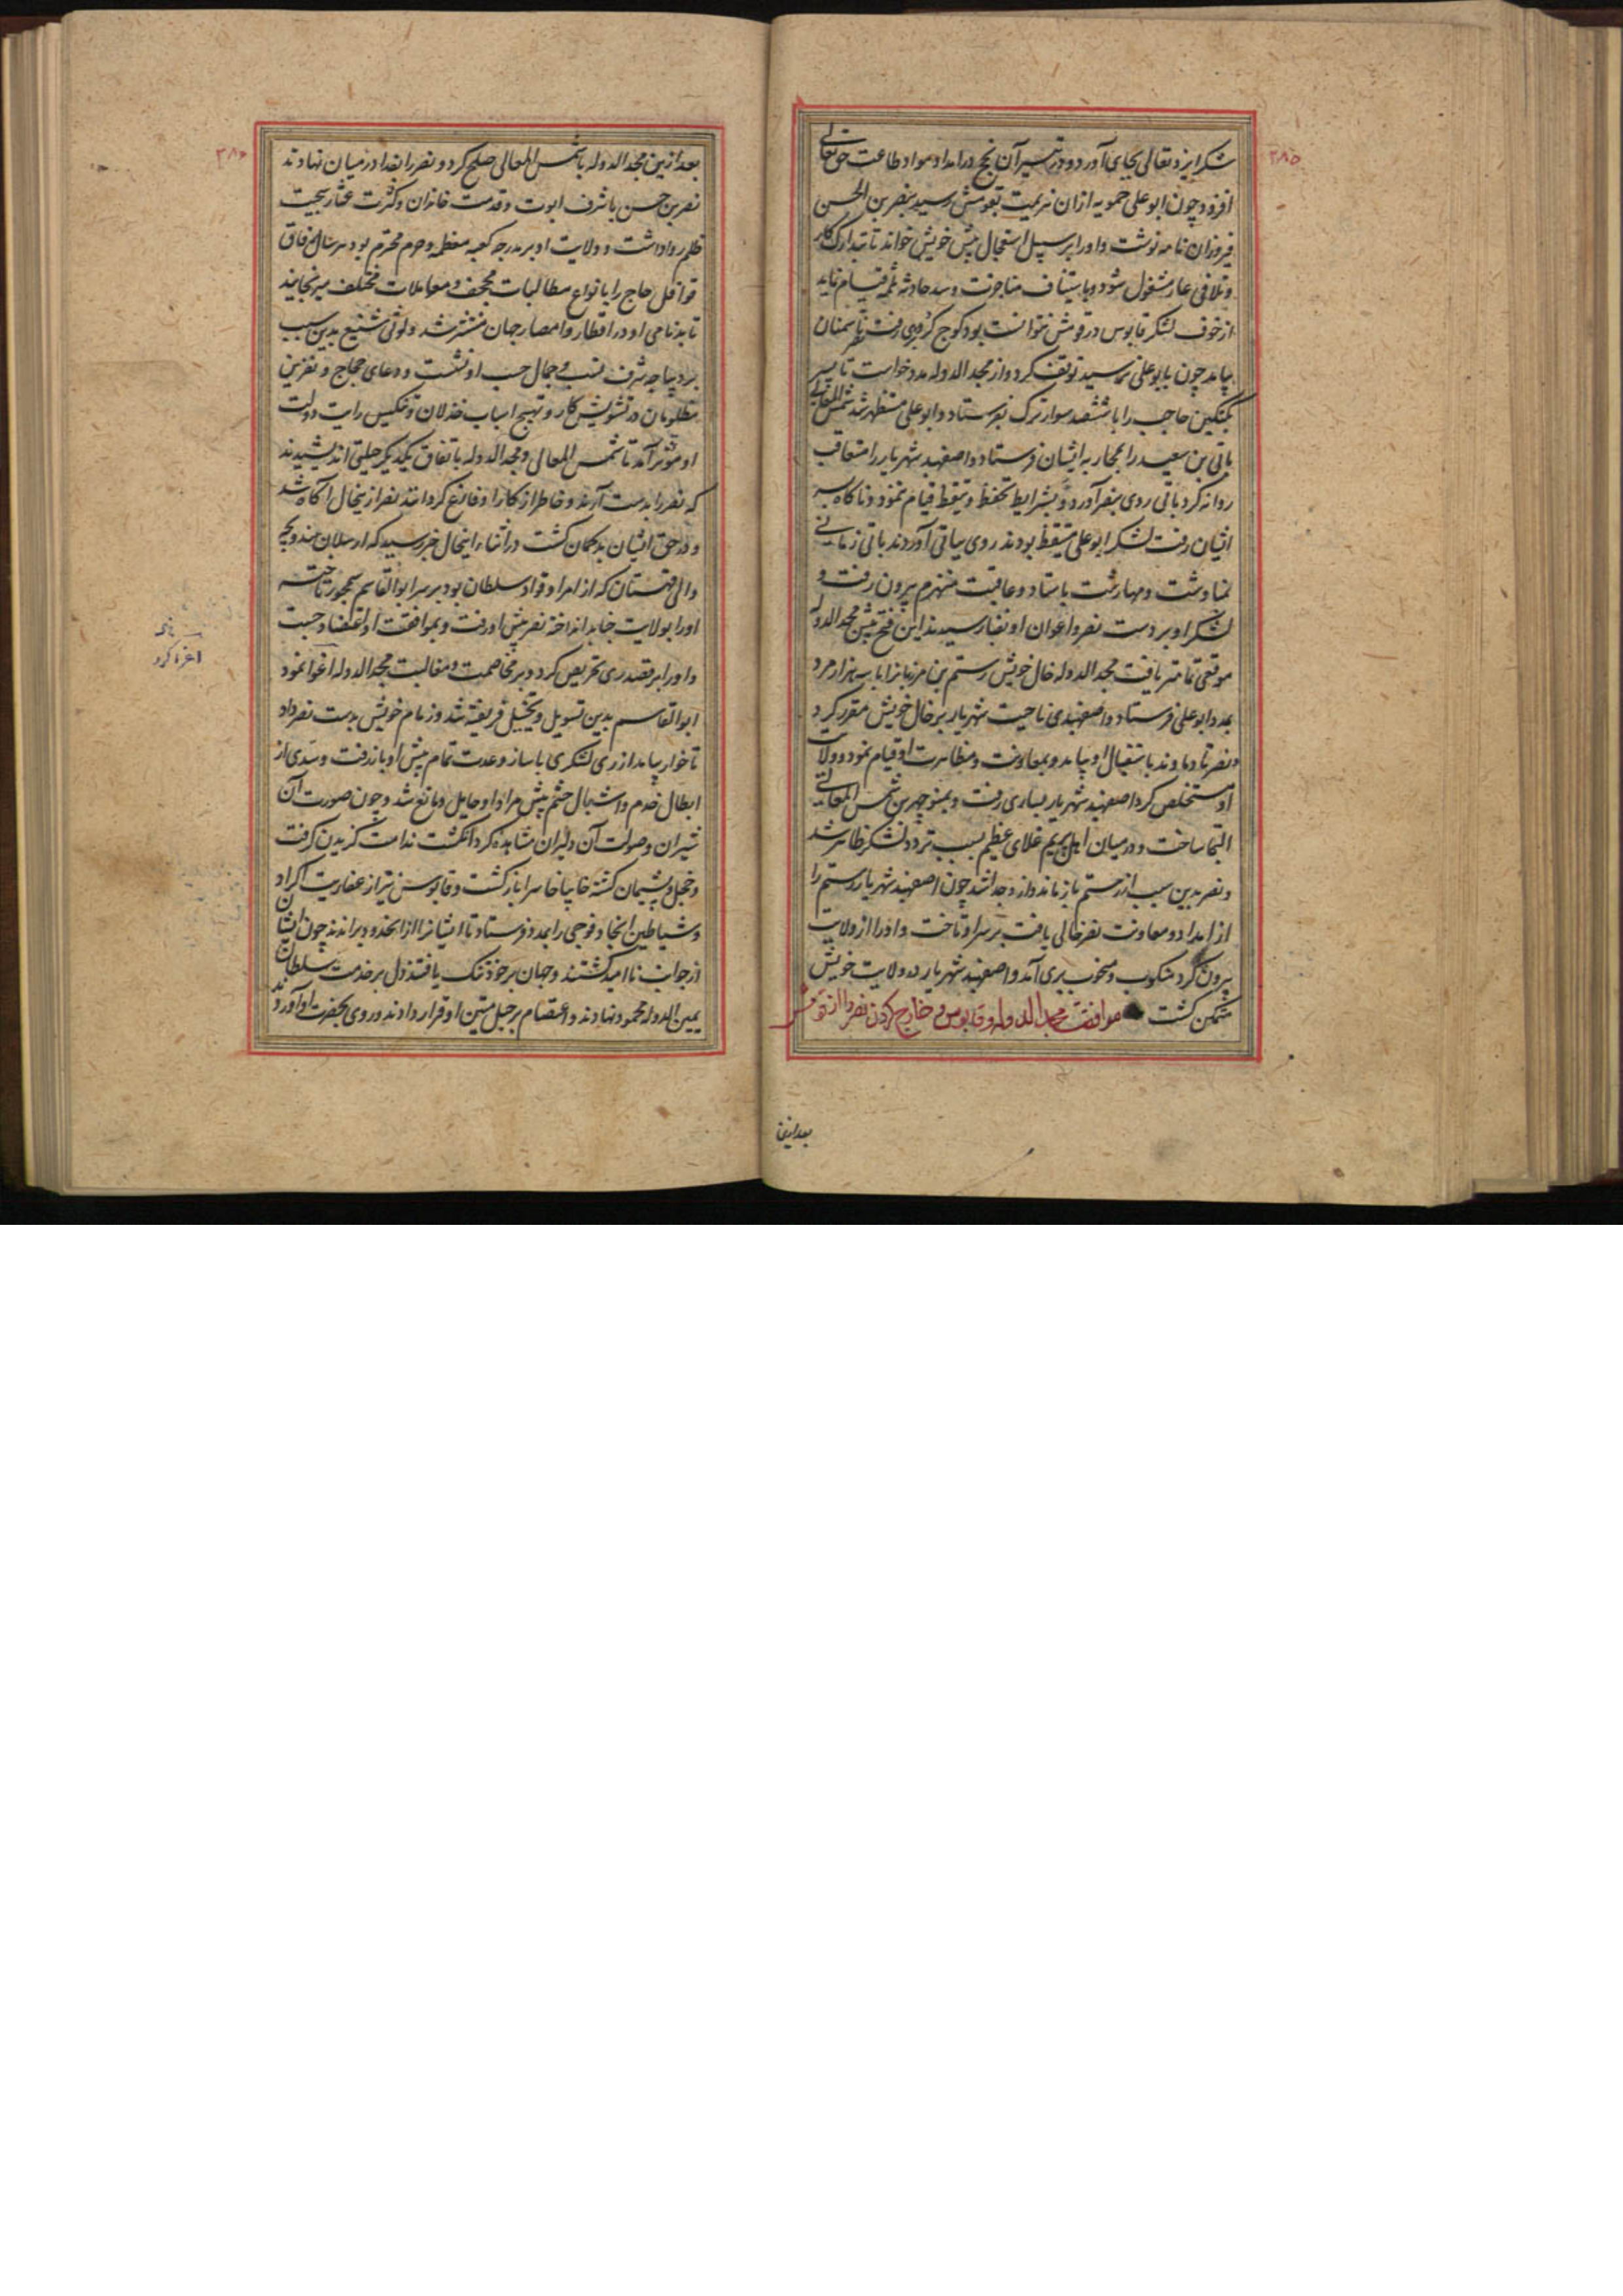 ۳۸۵
شکر ایزد تعالی بجای آورد و در تیسیر آن نجح در امداد مواد طاعت حق تعالی
افزود چون ابو علی حمویه از ان هزیمت بقومش رسید بنصر بن الحسن
فیروزان نامه نوشت و او را بر سبیل استعجال پیش خویش خواند تا بتدارک کار
و تلافی عار مشغول شود و باستیناف مناجزت و سد حادثه ثلمه قیام نماید
از خوف لشکر قابوس در قومش نتوانست بود کوچ کرد رفت تا سمنان
بیامد چون بابو علی رسید توقف کرد و از مجد الدوله مدد خواست تا پسر
بکتکین حاجب را با ششصد سوار ترک بفرستاد و ابو علی مستظهر شد شمس المعالی
باتی بن سعید را بمحاربه ایشان فرستاد و اصفهبد شهریار را متعاقب
روانه کرد باتی روی بنصر آورد و بشرایط تحفظ و تیقظ قیام ننمود و ناکاه بسر
ایشان رفت لشکر ابو علی متیقظ بودند روی بباتی آوردند باتی زمانی
بمناوشت و مهارشت باستاد و عاقبت منهزم بیرون رفت و
لشکر او بر دست نصر و اعوان او بفنا رسیدند این فتح پیش مجد الدوله
موقعی تمامتر یافت مجد الدوله خال خویش رستم بن مرزبانرا با سه هزار مرد
بمدد ابو علی فرستاد و اصفهبدی ناحیت شهریار بر خال خویش مقرر کرد
و نصر تا دماوند باستقبال او بیامد و بمعاونت و مظاهرت او قیام نمود و ولایت
او مستخلص کرد اصفهبد شهریار بساری رفت و بمنوچهر بن شمس المعالی
التجا ساخت و در میان اهل پریم غلای عظیم بسبب تردد لشکر ظاهر شد
و نصر بدین سبب از رستم باز ماند و از و جدا شد چون اصفهبد شهریار رستم را
از امداد و معاونت نصر خالی یافت بر سر او تاخت و او را از ولایت
بیرون کرد منکوب و منخوب بری آمد و اصفهبد شهریار در ولایت خویش
متمکن کشت موافقت مجد الدوله و قابوس در خارج کردن نصر را از قومش
بعد ازین
۳۸۶
بعد ازین مجد الدوله با شمس المعالی صلح کرد و نصر را در میان نهادند
نصر بن حسن با شرف ابوت و قدمت خاندان و کثرت عشار بجیت
ظلم روا داشت و ولایت او بر مدرجه کعبه معظمه و حرم محترم بود هر سال رفاق
قوافل حاج را بانواع مطالبات مجحف و معاملات مختلف میرنجانید
تا بدنامی او در اقطار و امصار جهان منتشر شد و لوثی شنیع بدین سبب
بر دیباجه شرف نسب و جمال حسب او نشست و دعای حجاج و نفرین
مظلومان در تشویش کار و تهییج اسباب خذلان و تنکیس رایت دولت
او مؤثر آمد تا شمس المعالی و مجد الدوله باتفاق یکدیکر حیلتی اندیشیدند
که نصر را بدست آرند و خاطر از کار او فارغ کردانند نصر ازینحال آکاه شد
و در حق ایشان بدکمان کشت در اثناء اینحال خبر رسید که ارسلان هندوبچه
والی قهستان که از امرا و قواد سلطان بود بر سر ابو القاسم سیمجور تاخته
او را بولایت جنابد انداخته نصر پیش او رفت و بموافقت او اعتضاد جست
و او را بر قصد ری تحریض کرد و بر مخاصمت و مغالبت مجد الدوله اغوا نمود
ابو القاسم بدین تسویل و تخییل فریفته شد و زمام خویش بدست نصر داد
تا خوار بیامد از ری لشکری با ساز و عدت تمام پیش او باز رفت و سدی از
ابطال خدم و اشبال حشم پیش مراد او حایل و مانع شد و چون صورت آن
شیران و صولت آن دلیران مشاهده کرد انکشت ندامت کزیدن کرفت
و خجل و پشیمان کشته خایبا خاسرا باز کشت و قابوس نیز از عفاریت اکراد
و شیاطین انجاد فوجی را بمدد فرستاد تا ایشانرا از انحدود براندند چون ایشان
از جوانب ناامید کشتند و جهان بر خود تنک یافتند دل بر خدمت سلطان
یمین الدوله محمود نهادند و اعتصام بر حبل متین او قرار دادند و روی بحضرت او آوردند
اغرا کرد